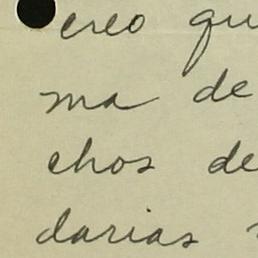 creo qu
ma de
chos de
darias